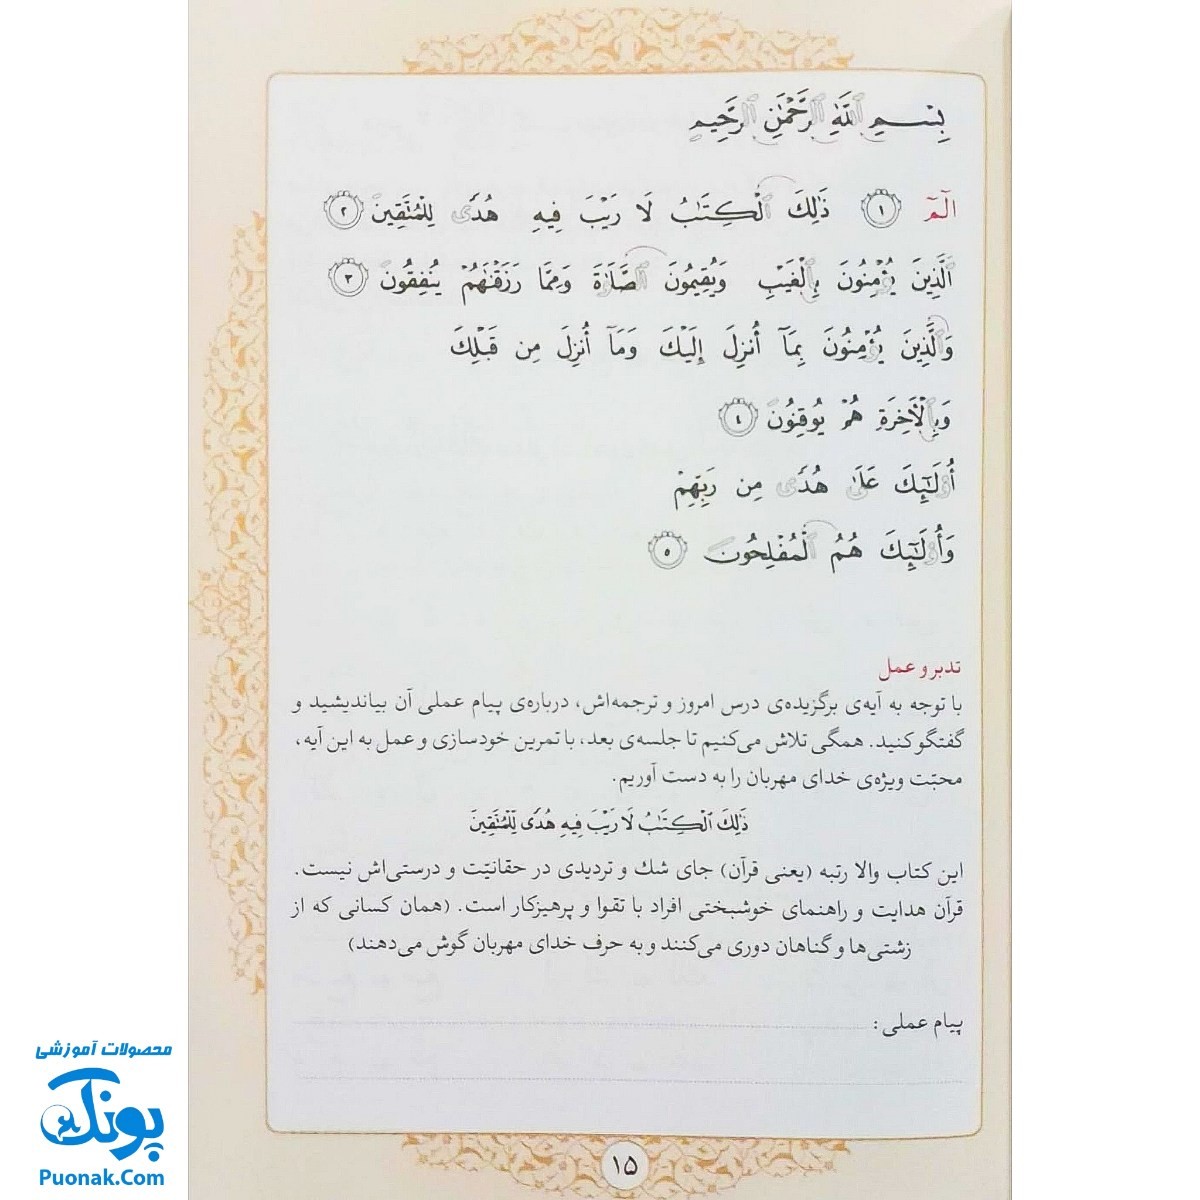 بِسْمِ ٱللَّهِ ٱلرَّحْمَٰنِ ٱلرَّحِيمِ
الٓمٓ ١ ذَٰلِكَ ٱلْكِتَٰبُ لَا رَيْبَ فِيهِ هُدًى لِلْمُتَّقِينَ ٢
ٱلَّذِينَ يُؤْمِنُونَ بِٱلْغَيْبِ وَيُقِيمُونَ ٱلصَّلَوٰةَ وَمِمَّا رَزَقْنَٰهُمْ يُنفِقُونَ ٣
وَٱلَّذِينَ يُؤْمِنُونَ بِمَآ أُنزِلَ إِلَيْكَ وَمَآ أُنزِلَ مِن قَبْلِكَ
وَبِٱلْأَخِرَةِ هُمْ يُوقِنُونَ ٤
أُوْلَٰٓئِكَ عَلَىٰ هُدًى مِن رَبِّهِمْ
وَأُوْلَٰٓئِكَ هُمُ ٱلْمُفْلِحُونَ ٥
تدبر و عمل
با توجه به آیه‌ی برگزیده‌ی درس امروز و ترجمه‌اش، درباره‌ی پیام عملی آن بیاندیشید و
گفتگو کنید. همگی تلاش می‌کنیم تا جلسه‌ی بعد، با تمرین خودسازی و عمل به این آیه،
محبّت ویژه‌ی خدای مهربان را به دست آوریم.
ذَٰلِكَ ٱلْكِتَٰبُ لَا رَيْبَ فِيهِ هُدًى لِلْمُتَّقِينَ
این کتاب والا رتبه (یعنی قرآن) جای شك و تردیدی در حقانیّت و درستی‌اش نیست.
قرآن هدایت و راهنمای خوشبختی افراد با تقوا و پرهیزکار است. (همان کسانی که از
زشتی‌ها و گناهان دوری می‌کنند و به حرف خدای مهربان گوش می‌دهند)
پیام عملی:
محصولات آموزشی
پونک
Puonak.Com
۱۵